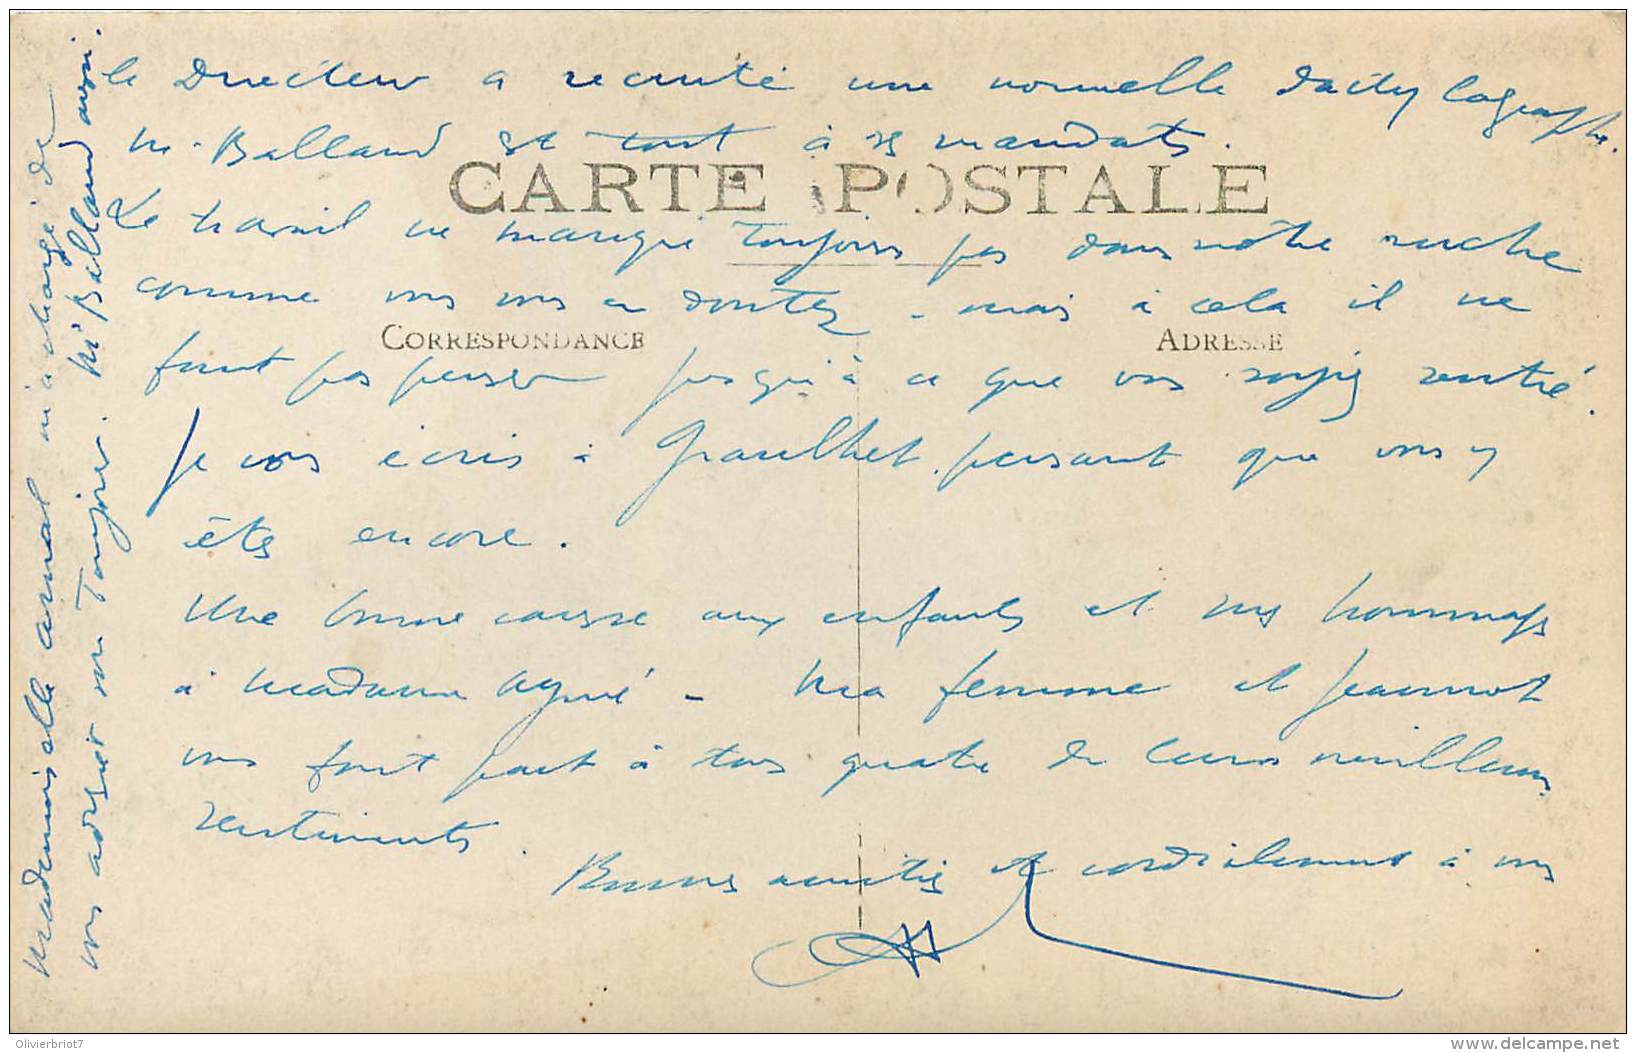 le Directeur a recruté une nouvelle dactylographe.
M. Balland est tout à ses mandats.
CARTE POSTALE
Le travail ne manque toujours pas dans notre ruche
comme vous vous en doutez - mais à cela il ne
CORRESPONDANCE
ADRESSE
faut pas penser jusqu'à ce que vous soyez rentré.
Je vous écris à Graulhet, pensant que vous y
êtes encore.
Une bonne caresse aux enfants et mes hommages
à Madame Agné - Ma femme et Jeannot
vous font part à tous quatre de leurs meilleurs
sentiments.
Bonnes amitiés et cordialement à vous
Mademoiselle Arnal m'a chargé de
vous adresser son Toujours. Mr Balland aussi.
Olivierbriot7
www.delcampe.net